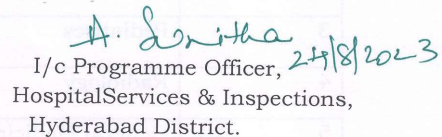 A. Sunitha
I/c Programme Officer, 24/8/2023
HospitalServices & Inspections,
Hyderabad District.